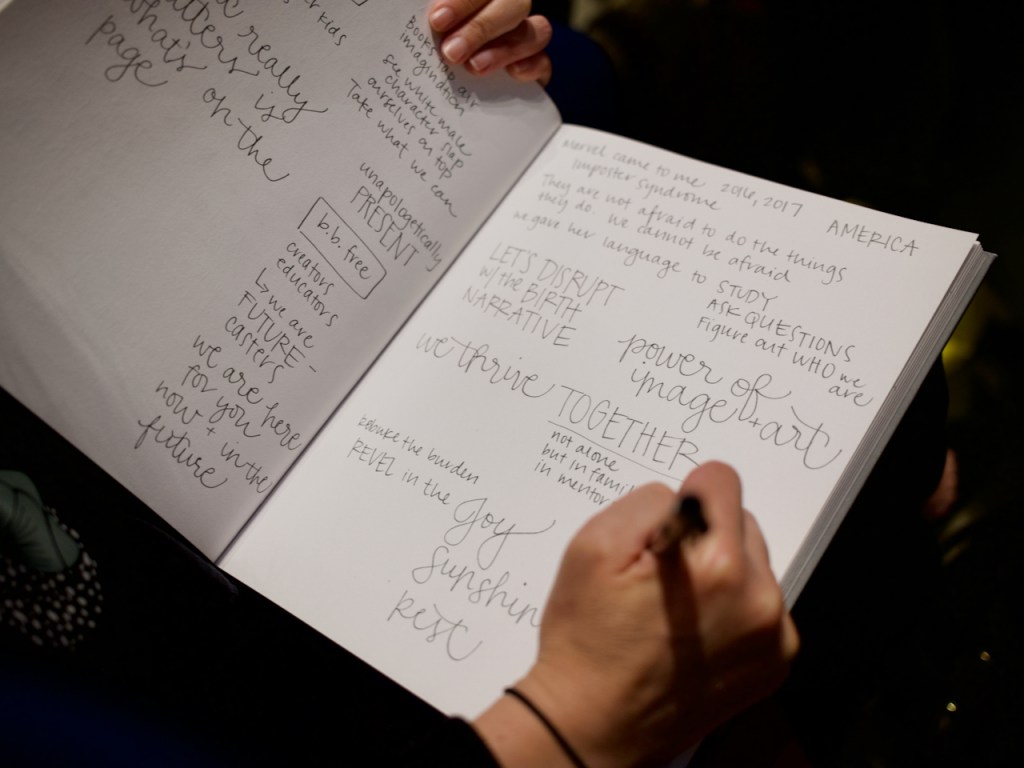 really
what's is
page on the
kids
imagination
see white male
character slap
ourselves on top
Take what we can
unapologetically
PRESENT
b.b. free
creators
educators
↳ we are
FUTURE-
casters
we are here
for you
now + in the
future
Marvel came to me 2016, 2017
Imposter Syndrome
AMERICA
They are not afraid to do the things
they do. We cannot be afraid
we gave her language to STUDY
ASK QUESTIONS
Figure out WHO we
are
LET'S DISRUPT
w/ the BIRTH
NARRATIVE
power of
image + art
we thrive TOGETHER
not alone
but in
in
rebuke the burden
REVEL in the Joy
rest